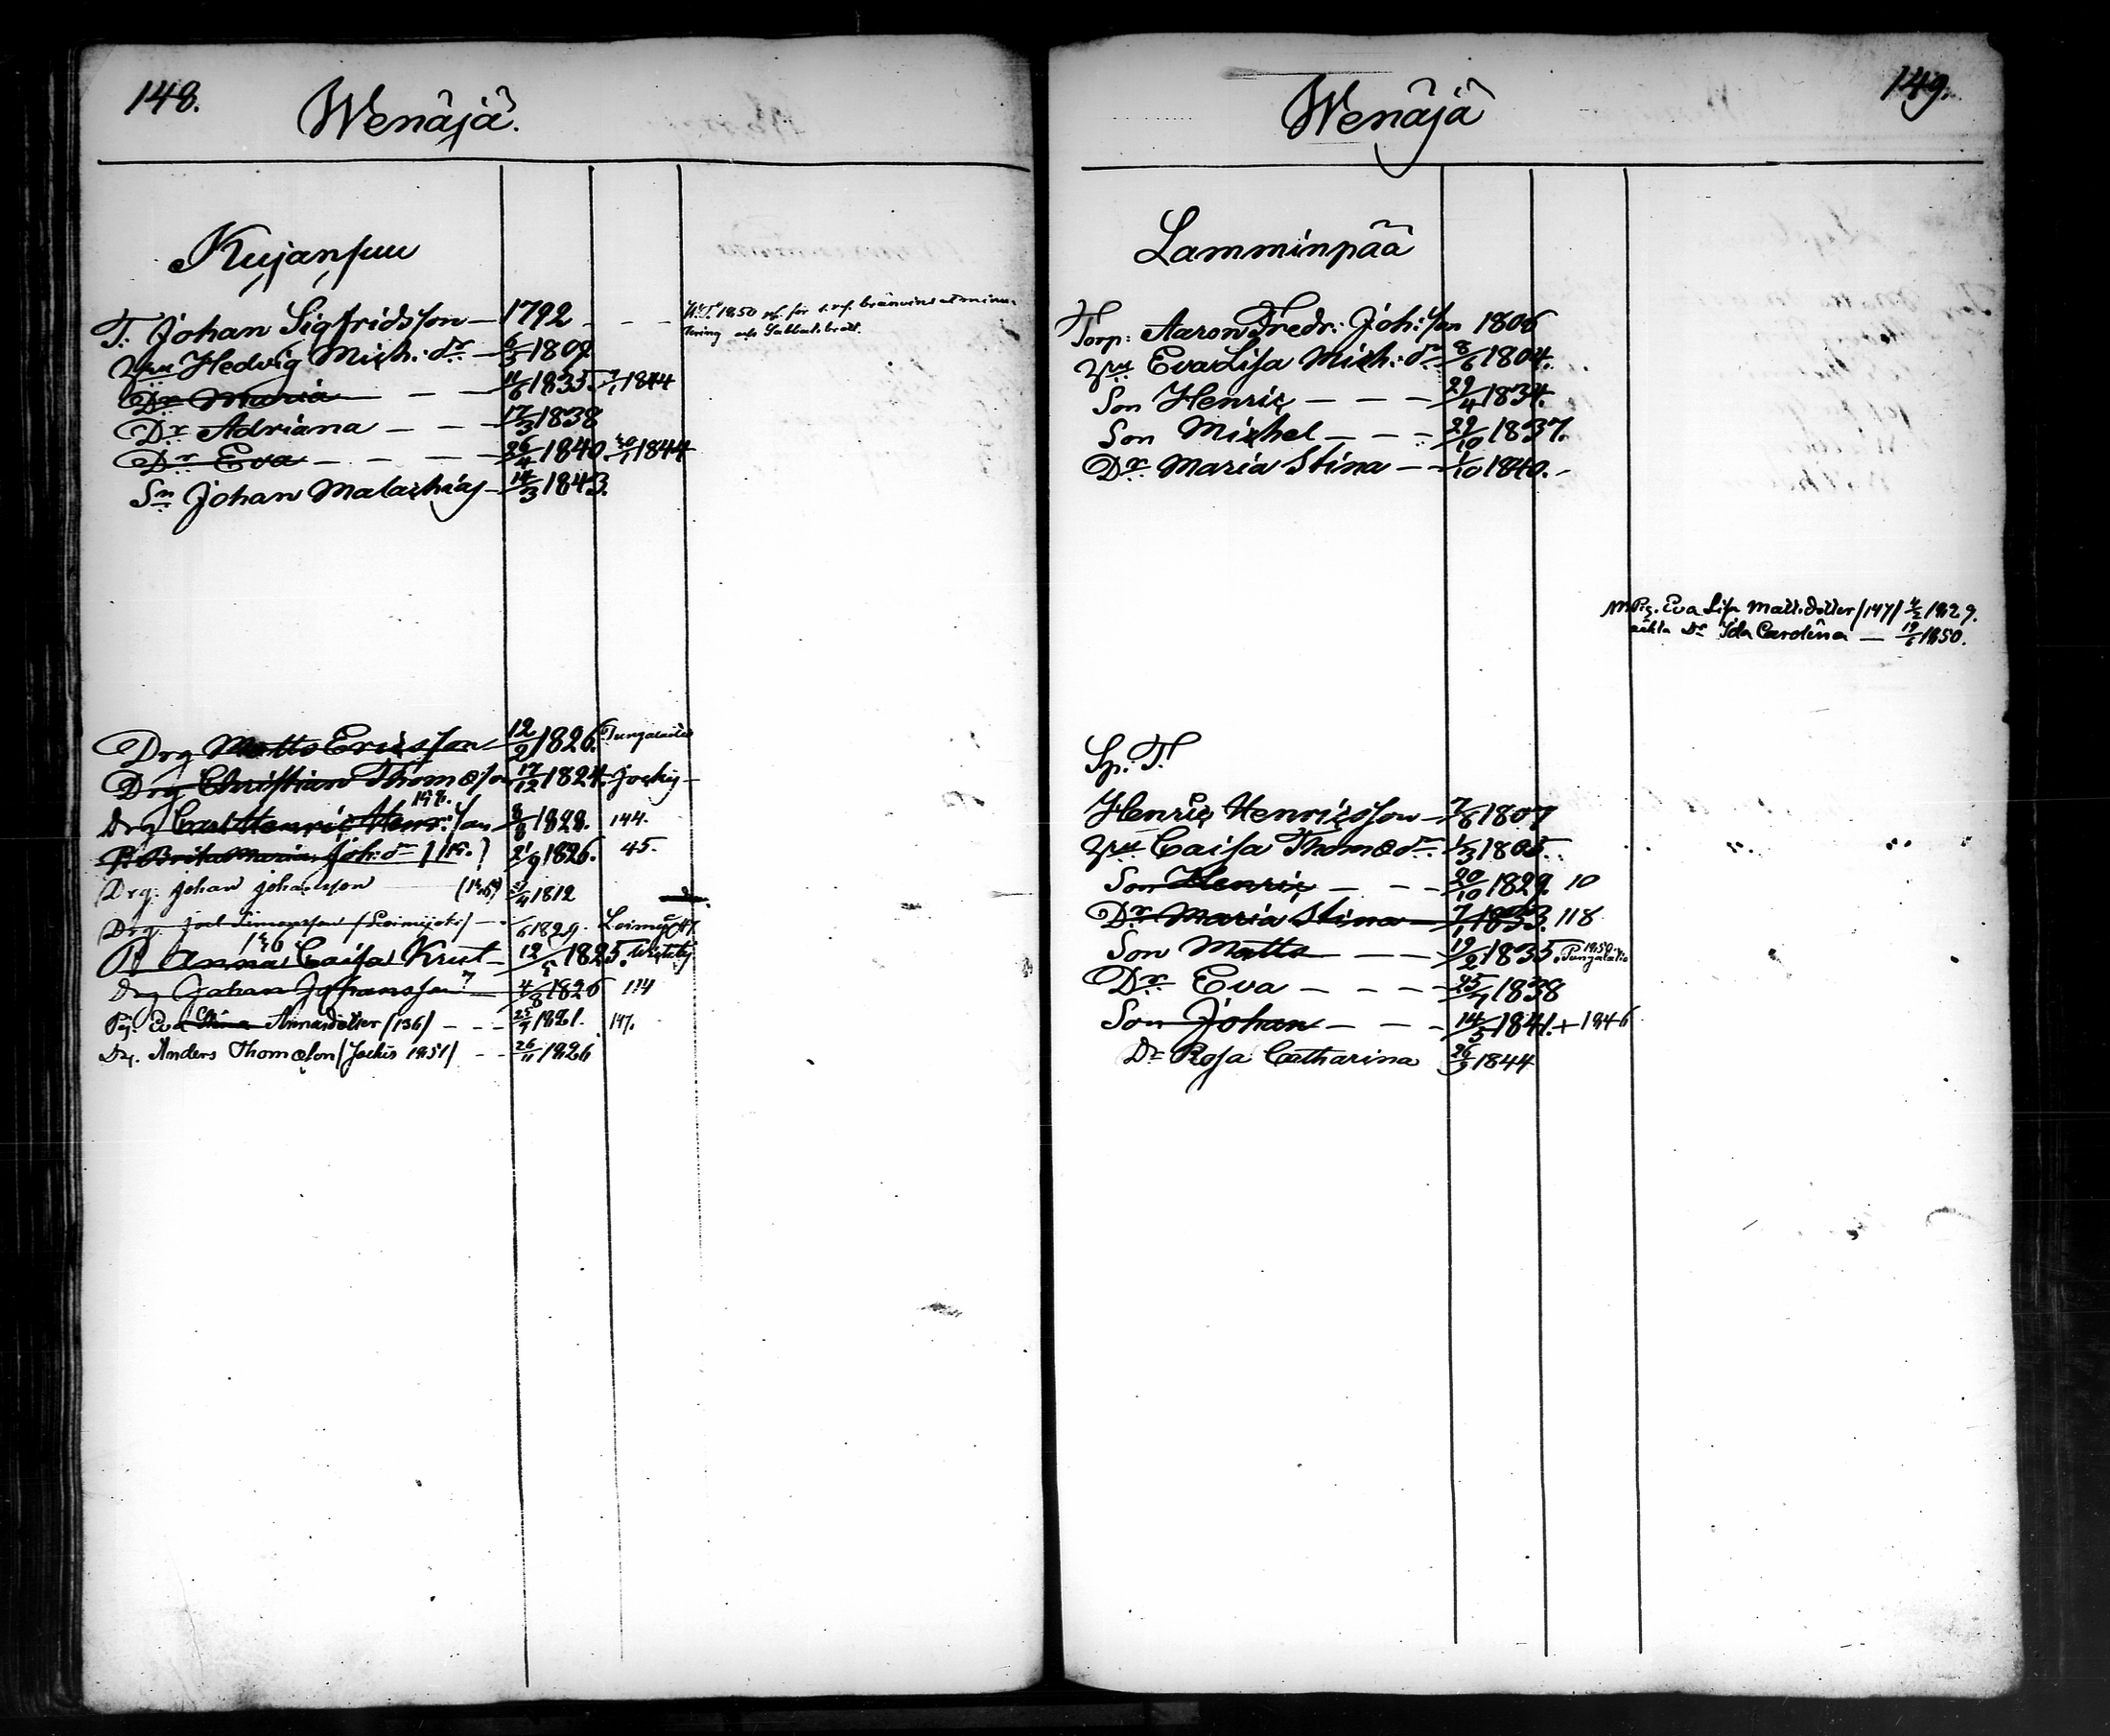 148.
Wenäjä.
Kujansuu
T. Johan Sigfridsson – 1792 – – –
1850 för bränvins
tering och Sabbatsbrott.
Hu Hedvig Mich: dr – 6/3 1809
Dr Maria – – 11/6 1835. 1844
Dr Adriana – – – 17/3 1838
Dr Eva – – – – 26/4 1840. 30/1 1844
Sn Johan Malachias – 14/3 1843.
Drg Matts Ericsson 12/9 1826.
Drg Christian Thomæson 17/12 1824. Jockis –
Drg Carl Henric Henr: son 1828. 144.
P. Brita Maria Joh: dr 21/9 1826. 45.
Drg. Johan Johansson 1812
Drg. Joel Simonsson / Loimijoki / – /6 1829. Loimijoki
P. Anna Caisa Krut – 12/5 1825.
Drg Johan Johansson – 4/8 1826 114
Pig. Eva Stina Annasdotter /136/ – – 25/7 1821. 147.
Dr. Anders Thomæson / Jockis 1851/ – – 26/11 1826
149.
Wenäjä
Lamminpää
Torp: Aaron Fredr: Joh: son 1806
Hu Eva Lisa Mich: dr 8/6 1804.
Son Henric – – – 29/4 1834.
Son Michel – – – 29/10 1837.
Dr Maria Stina – – 1/10 1840. –
Pig. Eva Lisa Matts dotter /147/ 4/2 1829.
oäkta Dr Ida Carolina — 19/6 1850.
Sp. T.
Henric Henricsson – 7/8 1807
Hu Caisa Thomæ dr. 1/3 1805.
Son Henric – – – 20/10 1829. 10
Dr Maria Stina – 7/1 1833. 118
Son Matts – – 19/2 1835. 1850
Dr Eva – – – – 25/7 1838
Son Johan – – – 14/5 1841. + 1846
Dr Rosa Catharina 26/9 1844